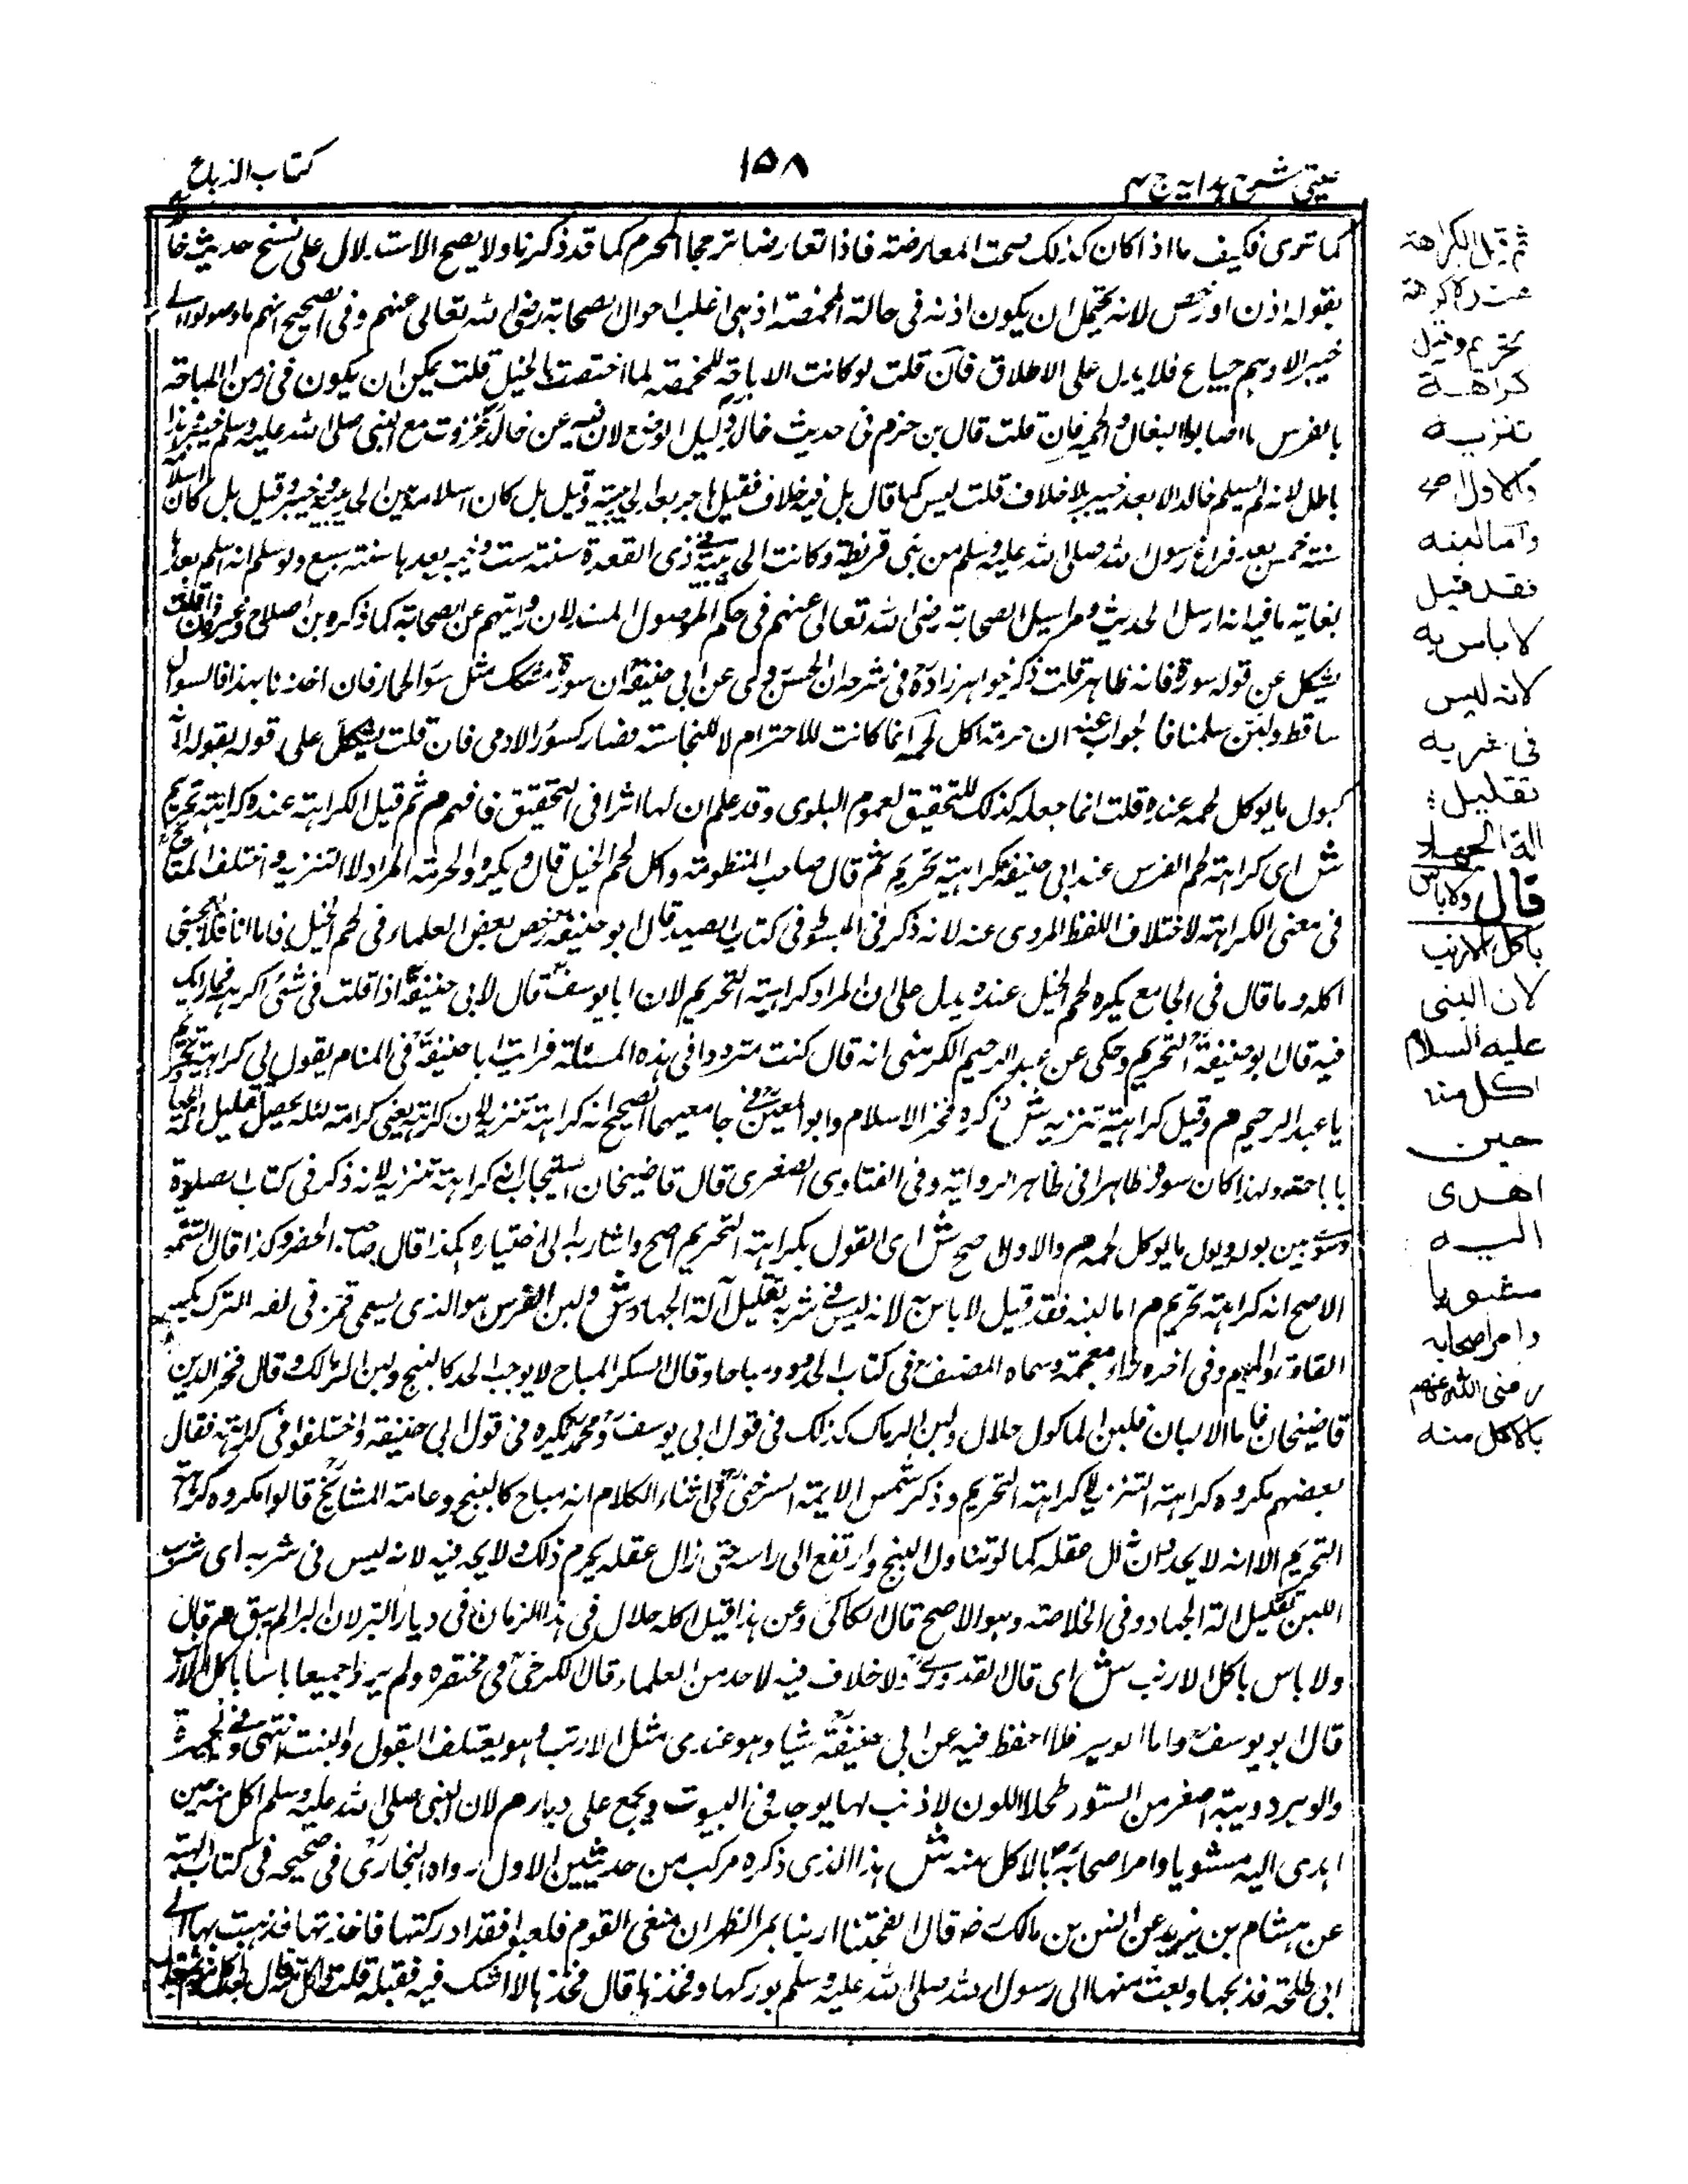 عینی شرح هدایه ج ۴
۱۵۸
کتاب الذبائح
کما تری فکیف ما اذا کان کذلک سمت المعارضة فاذا تعارضا ترجح المحرم کما قد ذکرنا ولا یصح الاستدلال علی نسخ حدیث خا
بقوله اذن او رخص لانه یحتمل ان یکون اذنه فی حالة المخمصة اذ هی اغلب احوال الصحابة رضی الله تعالی عنهم وفی الصحیح انهم ما وصلوا الی
خیبر الا وهم جیاع فلا یدل علی الاطلاق فان قلت لو کانت الاباحة للمخمصة لما اختصت بالخیل قلت یمکن ان یکون فی زمن الاباحة
بالفرس ما اصابوا البغال والحمیر فان قلت قال بن حزم فی حدیث خالد دلیل الوضع لان فیه عن خالد غزوت مع النبی صلی الله علیه وسلم خیبر وهذا
باطل لانه لم یسلم خالد الا بعد خیبر بلا خلاف قلت لیس کما قال بل فیه خلاف فقیل هاجر بعد الحدیبیة وقیل بل کان اسلامه بین الحدیبیة وخیبر وقیل بل کان اسلامه
سنة خمس بعد فراغ رسول الله صلی الله علیه وسلم من بنی قریظة وکانت الحدیبیة فی ذی القعدة سنة ست وخیبر بعدها سنة سبع ولو سلم انه اسلم بعدها
بغایة ما فیه انه ارسل الحدیث ومراسیل الصحابة رضی الله تعالی عنهم فی حکم الموصول المسند لان روایتهم عن الصحابة کما ذکره بن صلاح وغیره فان قلت
یشکل عن قوله سورة فانه ظاهر قلت ذکر خواهر زاده فی شرحه ان الحسن روی عن ابی حنیفة ان سوره مشکک مثل سؤر الحمار فان اخذنا بهذا فالسوال
ساقط ولئن سلمنا فالجواب عنه ان حرمة اکل لحمه انما کانت للاحترام لا للنجاسة فصار کسؤر الادمی فان قلت یشکل علی قوله بقوله ان
کبول ما یوکل لحمه عنده قلت انما جعله کذلک للتحقیق لعموم البلوی وقد علم ان لها اثرا فی التحقیق فافهم م ثم قیل الکراهة عنده کراهة تحریم
ش ای کراهة لحم الفرس عند ابی حنیفة کراهیة تحریم ثم قال صاحب المنظومة واکل لحم الخیل قال ویکره والحرمة المراد لا التنزیه و اختلف المشائخ
فی معنی الکراهة لاختلاف اللفظ المروی عنه لانه ذکر فی المبسوط فی کتاب الصید قال ابو حنیفة رخص بعض العلماء فی لحم الخیل فاما انا فلا یعجبنی
اکله وما قال فی الجامع یکره لحم الخیل عنده یدل علی ان المراد کراهیة التحریم لان ابا یوسف قال لابی حنیفة اذا قلت فی شئ اکره فما رایک
فیه قال ابو حنیفة التحریم وحکی عن عبد الرحیم الکرمینی انه قال کنت مترددا فی هذه المسئلة فرایت ابا حنیفة فی المنام یقول لی کراهة تحریم
یا عبد الرحیم م وقیل کراهیة تنزیه ش ذکره فخر الاسلام وابو المعین فی جامعیهما الصحیح انه کراهة تنزیه لان کراهته بمعنی کرامة لئلا یحصل تقلیل آلة الجهاد
باباحته ولهذا کان سوره ظاهرا فی ظاهر الروایة وفی الفتاوی الصغری قال قاضیخان اسبیجابی کراهة تنزیه لانه ذکر فی کتاب الصلوة
وسوی بین بوله وبول ما یوکل لحمه م والاول اصح ش ای القول بکراهة التحریم اصح واشار به الی اختیاره هکذا قال صاحب الحصر وکذا قال التتمة
الاصح انه کراهة تحریم م اما لبنه فقد قیل لا باس به لانه لیس فی شربه تقلیل آلة الجهاد ش ولبن الفرس هو الذی یسمی قمز فی لغة الترک بکسر
القاف والمیم وفی اخره زاء معجمة وسماه المصنف فی کتاب الحدود مباحا وقال السکر المباح لا یوجب الحد کالبنج ولبن الرماک وقال فخر الدین
قاضیخان فاما الالبان فلبن الماکول حلال ولبن الرماک کذلک فی قول ابی یوسف ومحمد ویکره فی قول ابی حنیفة واختلفوا فی کراهته فقال
بعضهم مکروه کراهة التنزیه لا کراهة التحریم وذکر شمس الایمة السرخسی فی اثناء الکلام انه مباح کالبنج وعامة المشائخ قالوا مکروه کراهة
التحریم الا انه لا یحد وان زال عقله کما لو تناول البنج وارتفع الی راسه حتی زال عقله یحرم ذلک ولا یحد فیه لانه لیس فی شربه ای شرب
اللبن تقلیل الة الجهاد وفی الخلاصة وهو الاصح قال الکاکی وعن هذا قیل اکله حلال فی هذا الزمان فی دیار التتر لان البرالم یبق م قال
ولا باس باکل الارنب ش ای قال القدوری ولا خلاف فیه لاحد من العلماء قال الکرخی فی مختصره ولم یروا جمیعا باسا باکل الارنب
قال ابو یوسف واما الوبر فلا احفظ فیه عن ابی حنیفة شیا وهو عندی مثل الارنب وهو یعتلف البقول والنبت انتهی وفی الجمهرة
والوبر دویبة اصغر من السنور طحلاء اللون لا ذنب لها یوجد فی البیوت ویجمع علی وبار م لان النبی صلی الله علیه وسلم اکل منه حین
اهدی الیه مشویا وامر اصحابه بالاکل منه ش هذا الذی ذکره مرکب من حدیثین الاول رواه البخاری فی صحیحه فی کتاب الهبة
عن هشام بن یزید عن انس بن مالک رض قال انفجنا ارنبا بمر الظهران فسعی القوم فلعبوا فقد ادرکتها فاخذتها فذهبت بها الی
ابی طلحة فذبحها وبعث منها الی رسول الله صلی الله علیه وسلم بورکها وفخذها قال فخذها لا اشک فیه فقبله قلت واکل منه قال
ثم قیل الکراهة
عنده کراهة
تحریم وقیل
کراهة
تنزیه
والاول اصح
واما لبنه
فقد قیل
لا باس به
لانه لیس
فی شربه
تقلیل
الة الجهاد
قال ولا باس
باکل الارنب
لان النبی
علیه السلام
اکل منه
حین
اهدی
الیه
مشویا
وامر اصحابه
رضی الله عنهم
بالاکل منه